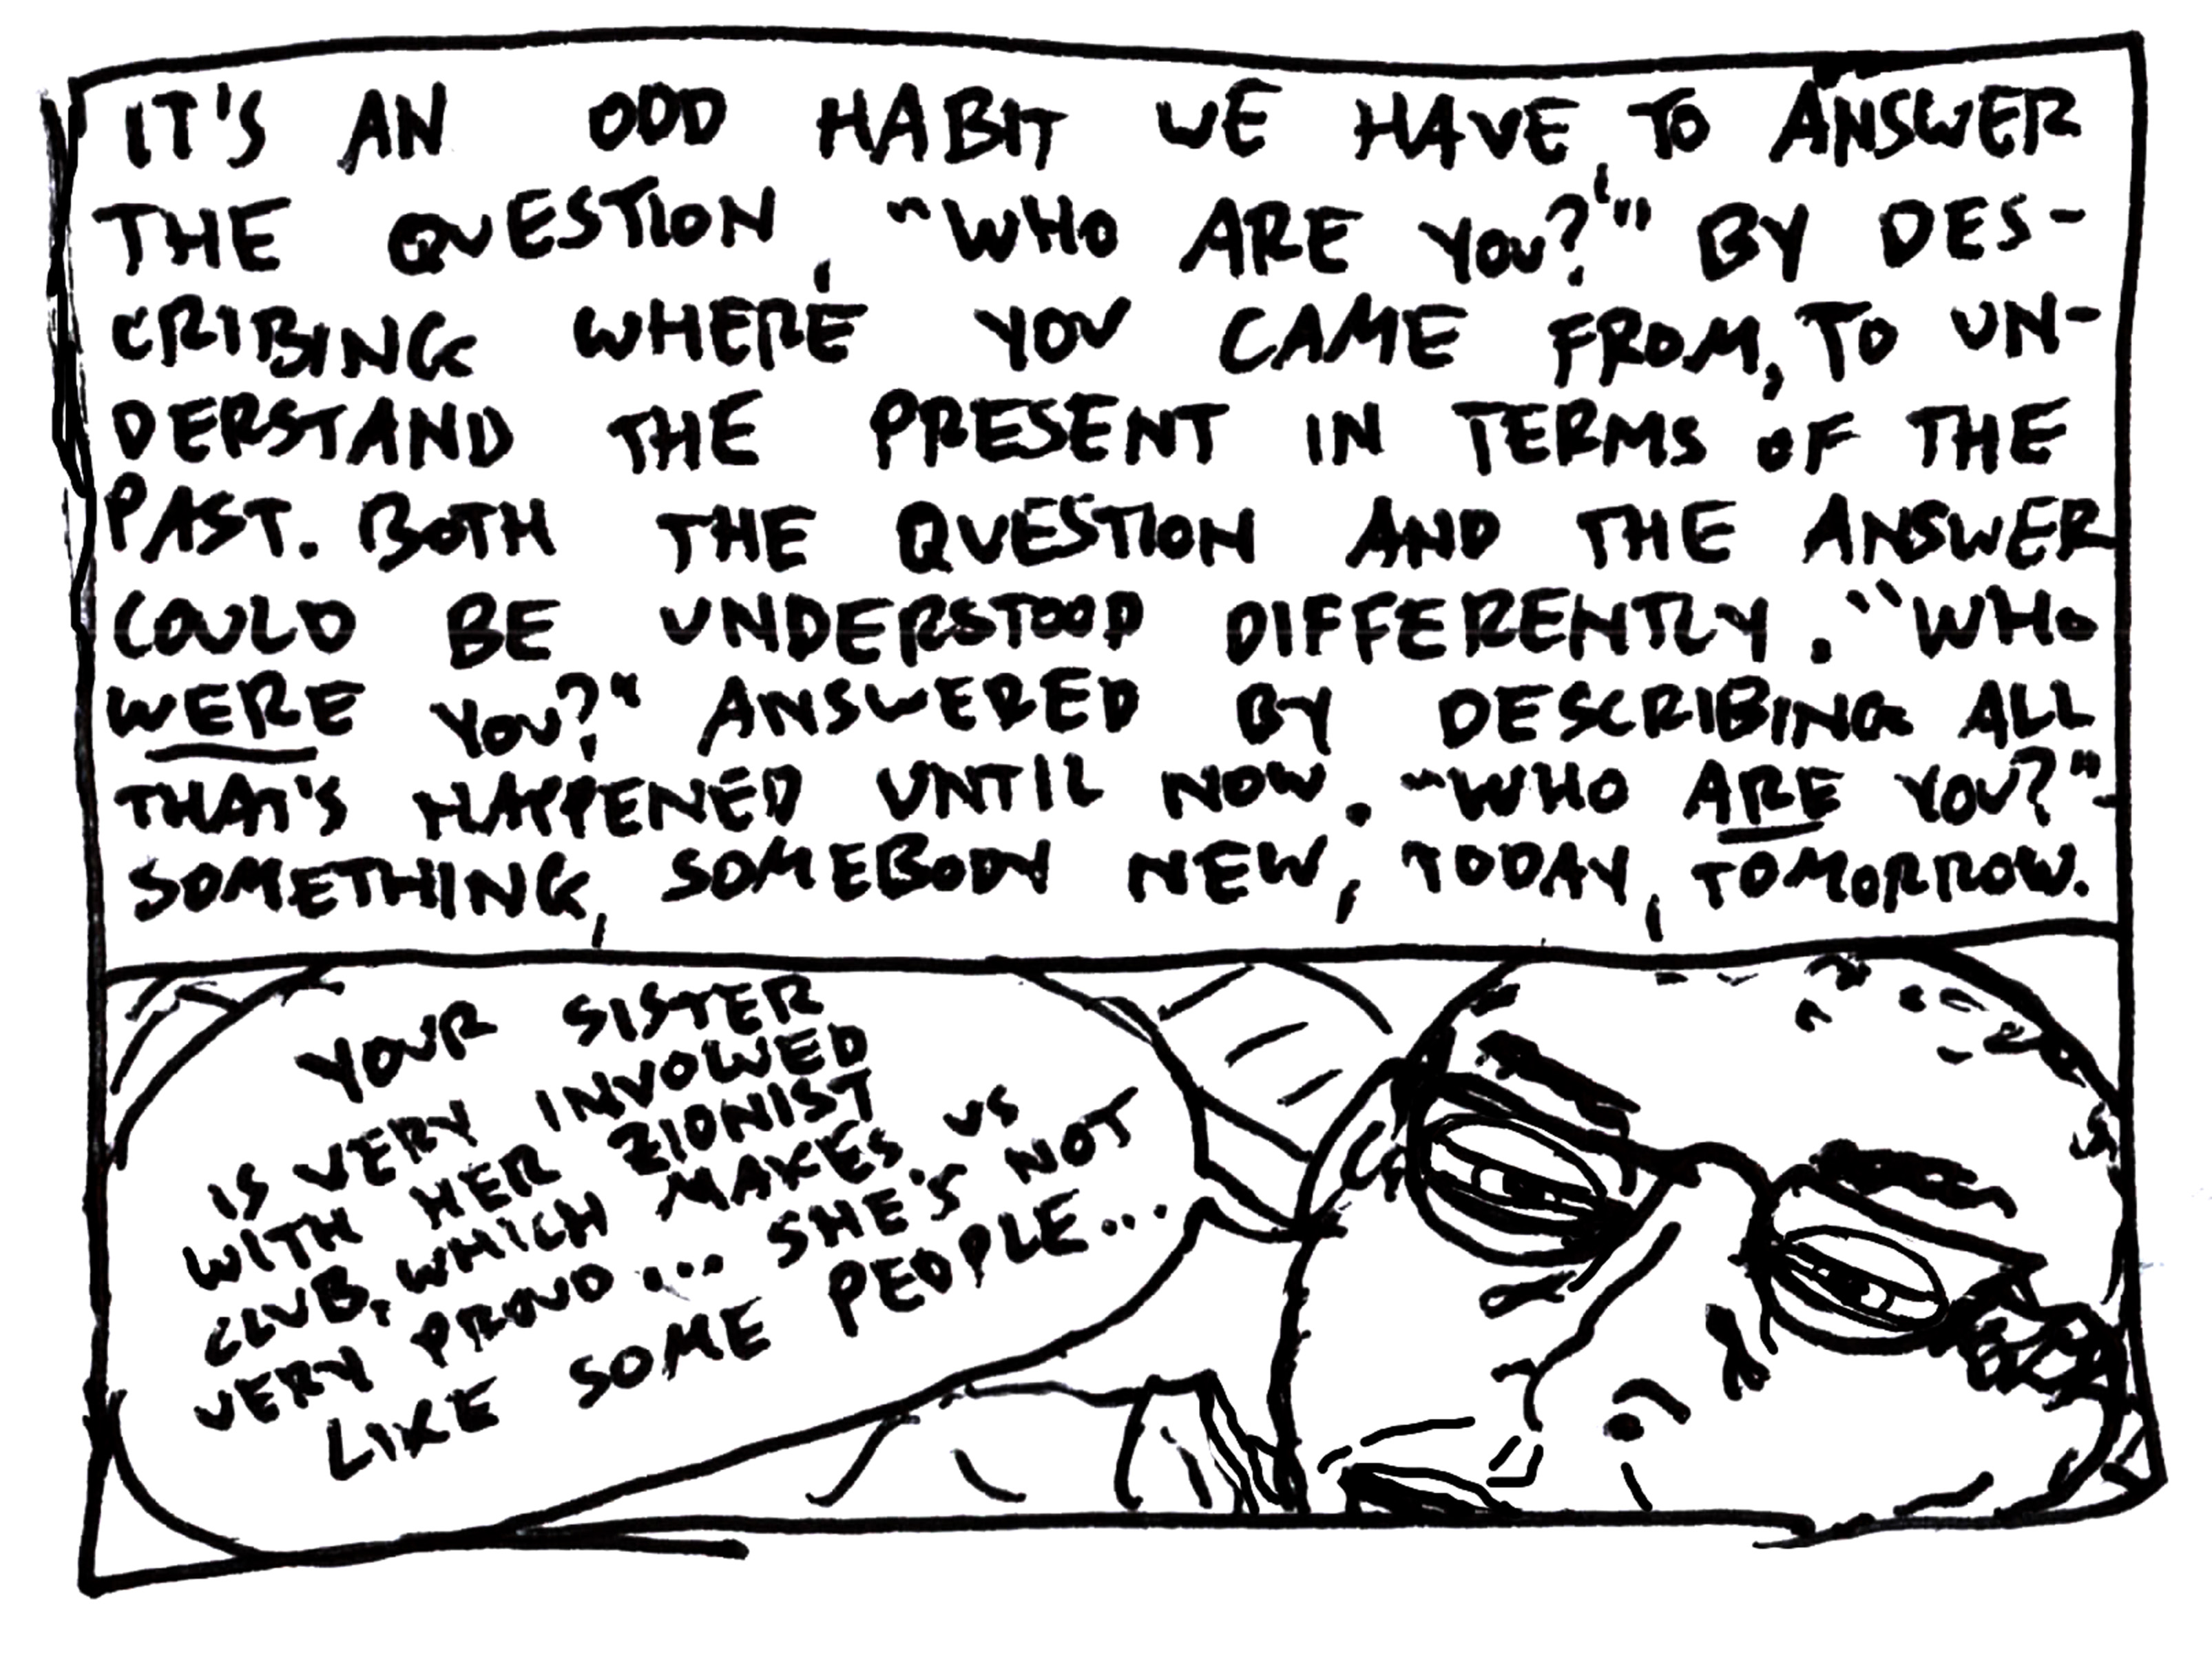 IT'S AN ODD HABIT WE HAVE, TO ANSWER
THE QUESTION, "WHO ARE YOU?" BY DES-
CRIBING WHERE YOU CAME FROM, TO UN-
DERSTAND THE PRESENT IN TERMS OF THE
PAST. BOTH THE QUESTION AND THE ANSWER
COULD BE UNDERSTOOD DIFFERENTLY. "WHO
WERE YOU?" ANSWERED BY DESCRIBING ALL
THAT'S HAPPENED UNTIL NOW. "WHO ARE YOU?"-
SOMETHING, SOMEBODY NEW, TODAY, TOMORROW.
YOUR SISTER
IS VERY INVOLVED
WITH HER ZIONIST
CLUB, WHICH MAKES US
VERY PROUD... SHE'S NOT
LIKE SOME PEOPLE...